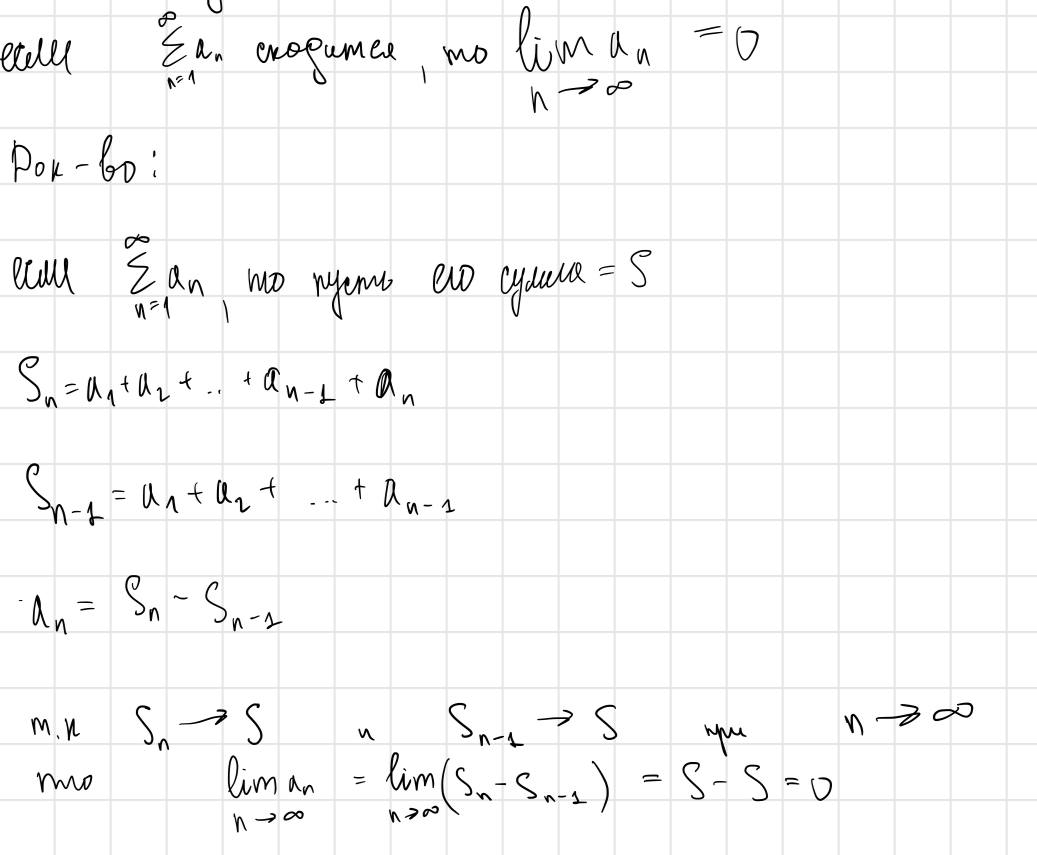 если ∑_{n=1}^{∞} a_n сходится, то lim_{n→∞} a_n = 0
Док-во:
если ∑_{n=1}^{∞} a_n, то пусть его сумма = S
S_n = a_1 + a_2 + .. + a_{n-1} + a_n
S_{n-1} = a_1 + a_2 + ... + a_{n-1}
a_n = S_n - S_{n-1}
т.к S_n → S и S_{n-1} → S при n → ∞
то lim_{n→∞} a_n = lim_{n→∞} (S_n - S_{n-1}) = S - S = 0